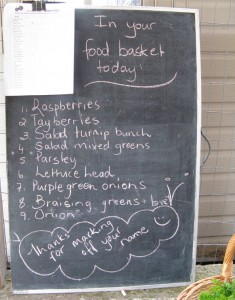 In your
food basket
today:
1. Raspberries
2 Tayberries
3 Salad turnip bunch
4 Salad mixed greens
5 Parsley
6. Lettuce head,
7. Purple green onions
8 Braising greens
9. Onion
Thanks
for marking
off your
name